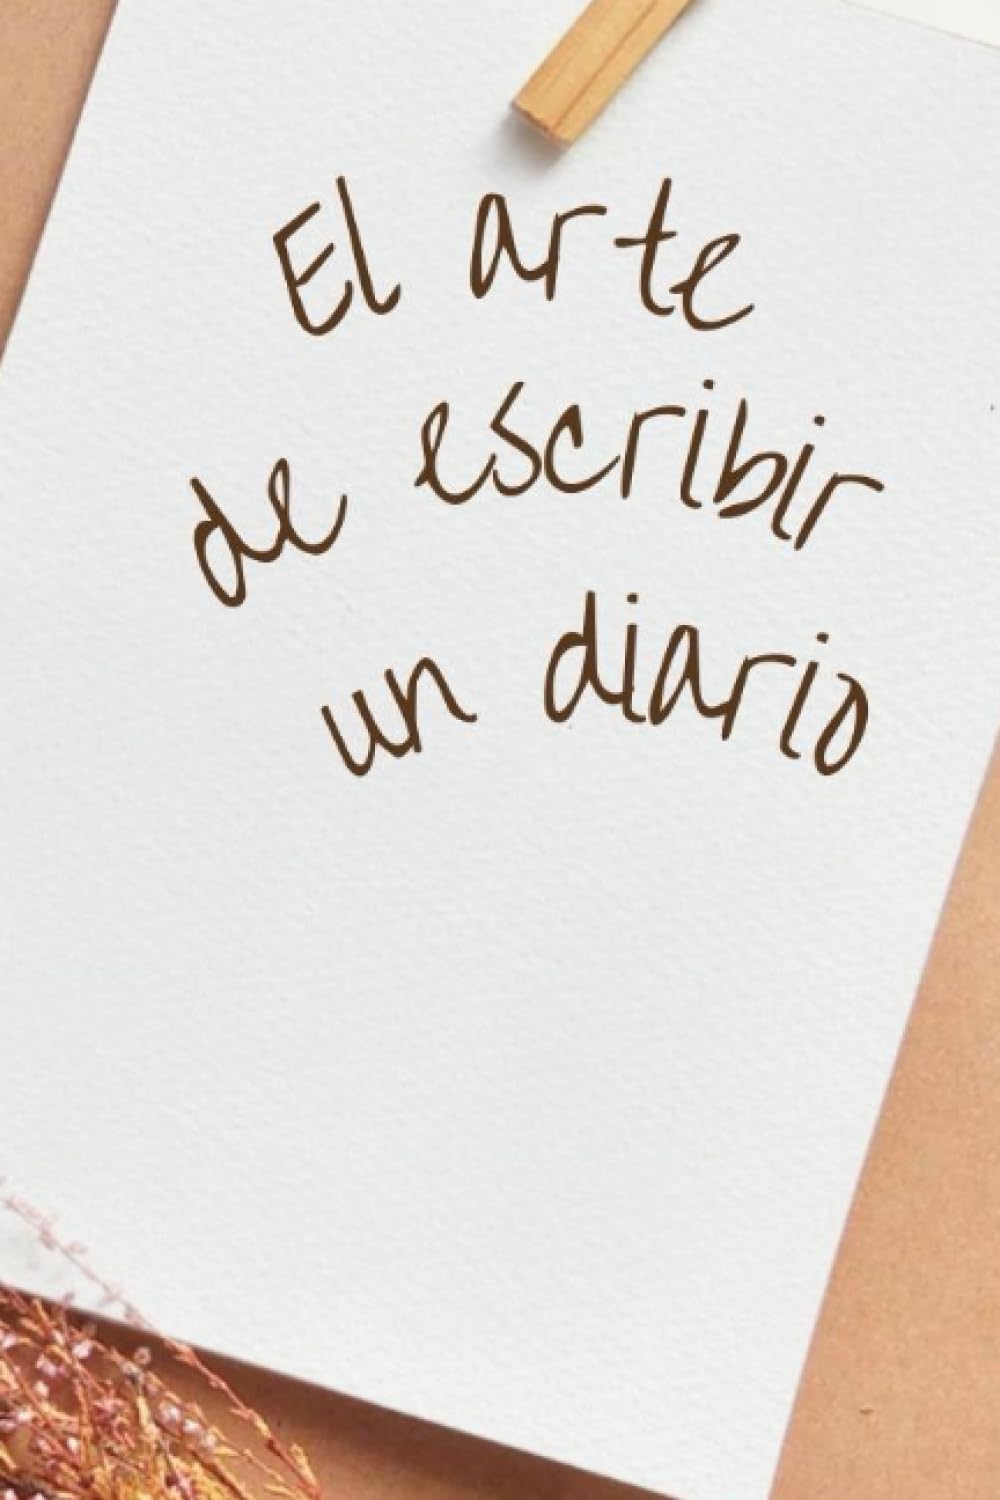 El arte
de escribir
un diario